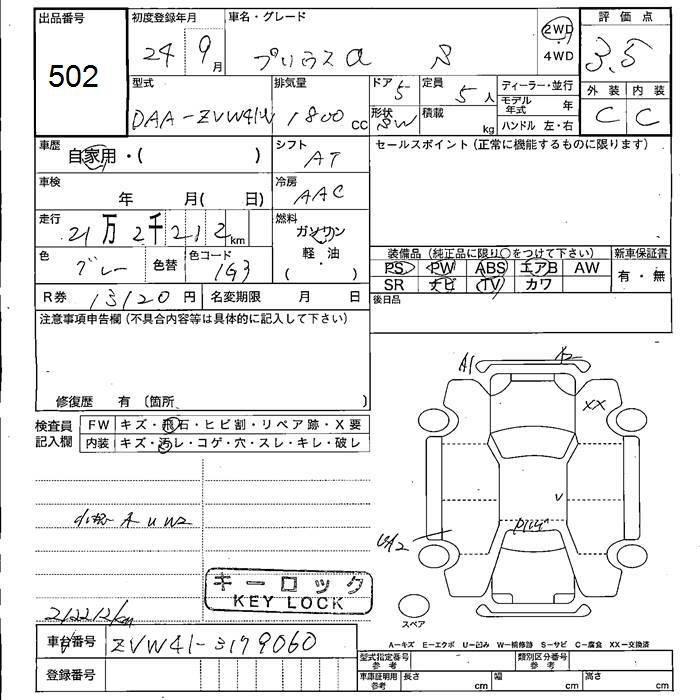 出品番号 初度登録年月 車名・グレード 評価点
502 24 9月 プリウスα S 2WD 4WD 3.5
型式 排気量 ドア 5 定員 5人 ディーラー・並行 外装 内装
DAA-ZVW41W 1800cc 形状 SW 積載 kg モデル年式 年 C C
ハンドル 左・右
車歴 自家用・( ) シフト AT セールスポイント(正常に機能するものに限ります)
車検 年 月( 日) 冷房 AAC
走行 21万2千212km 燃料 ガソリン
軽・油
( ・ )
色 グレー 色替 色コード 1G3 装備品(純正品に限り○をつけて下さい) 新車保証書
PS PW ABS エアB AW 有・無
SR ナビ TV カワ
R券 13120円 名変期限 月 日 後日品
注意事項申告欄(不具合内容等は具体的に記入して下さい)
修復歴 有 〔箇所 〕
検査員記入欄 FW キズ・飛石・ヒビ割・リペア跡・X要
内装 キズ・汚レ・コゲ・穴・スレ・キレ・破レ
A1 A2
XX
V
A U W2
キーロック
KEY LOCK
212212km
スペア
A-キズ E-エクボ U-凹み W-補修跡 S-サビ C-腐食 XX-交換済
車台番号 ZVW41-3179060
型式指定番号 参考 類別区分番号 参考
登録番号 車庫証明用 参考 長さ cm 幅 cm 高さ cm